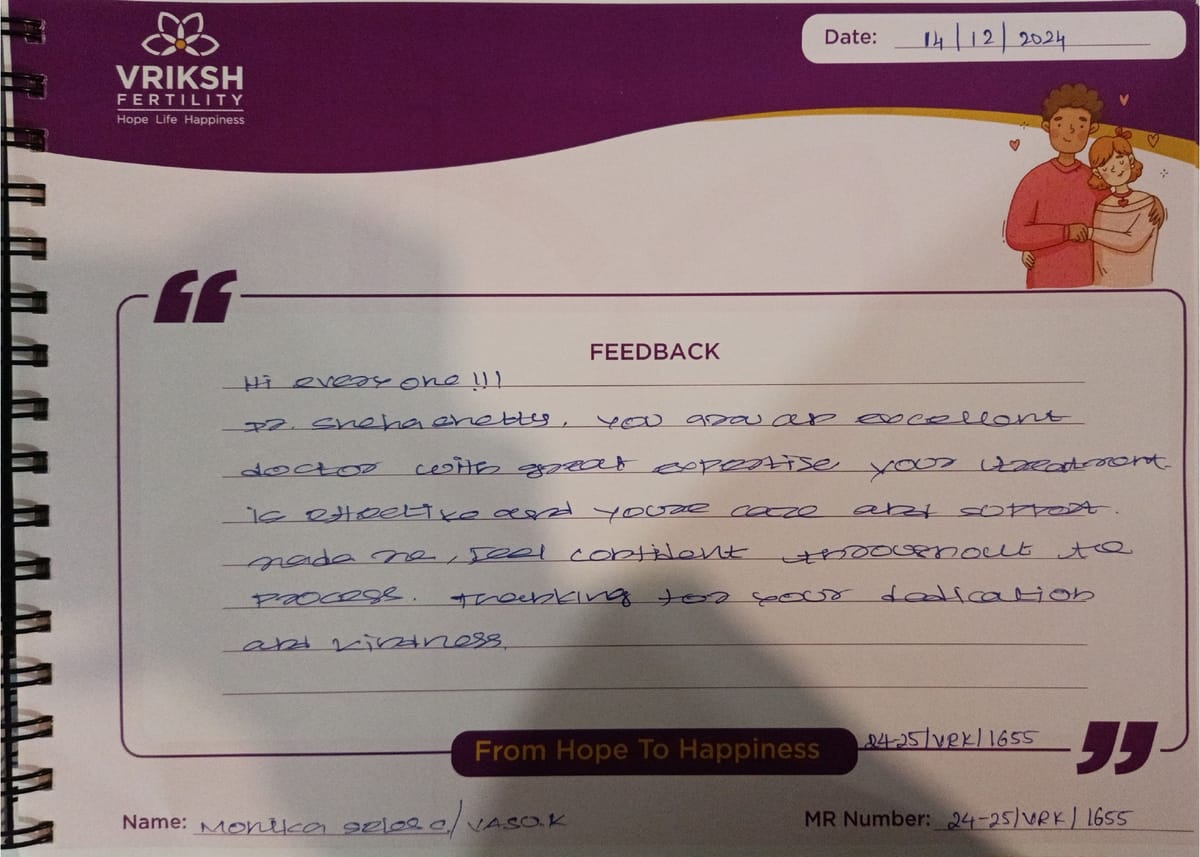 VRIKSH
FERTILITY
Hope Life Happiness
Date: 14/12/2024
FEEDBACK
Hi every one !!!
Dr. Sneha shetty, you are an excellent
doctor with great expertise your treatment
is effective and youre care and support.
made me, feel confident throughout te
process. Thanking for your dedication
and kindness.
From Hope To Happiness
24-25/VRK/1655
Name: Monika / VASU.K
MR Number: 24-25/VRK/1655